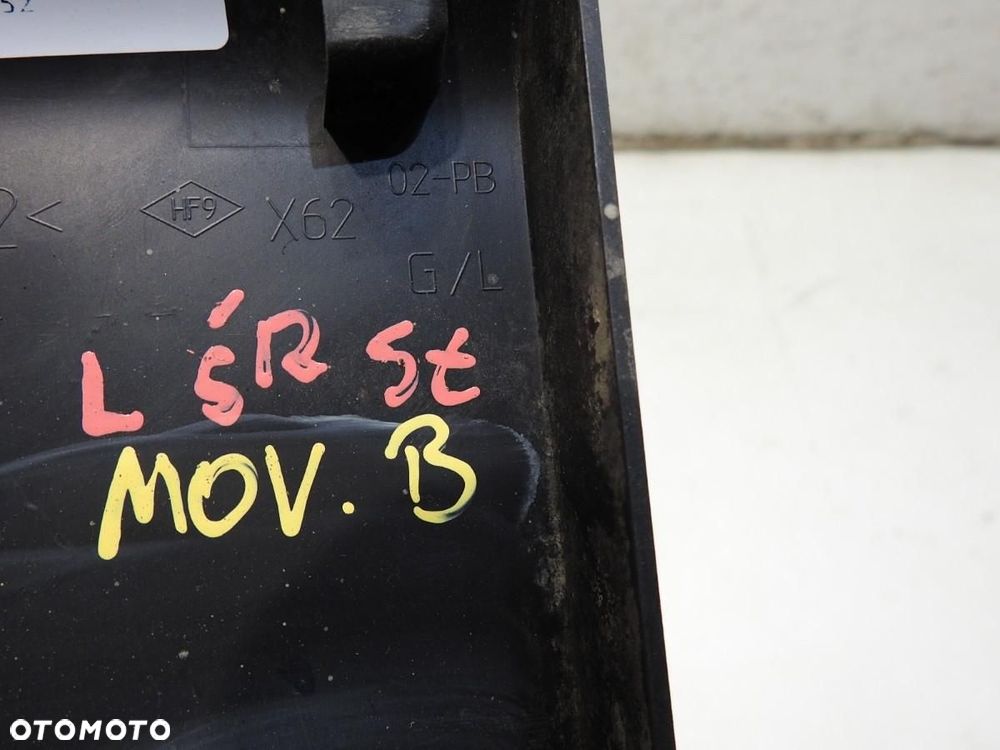 52
02-PB
2< HF9 X62
G/L
L ŚR St
MOV. B
OTOMOTO